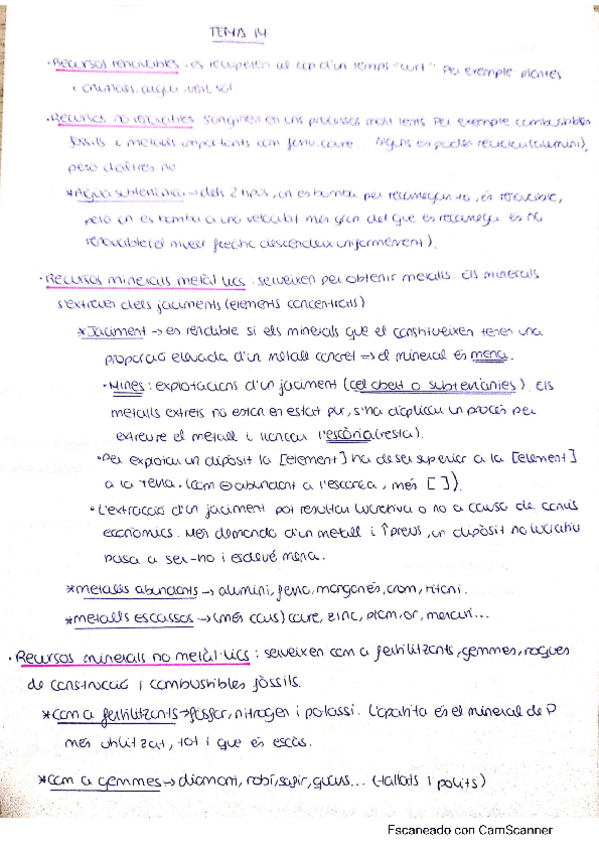 TEMA 14
· Recursos renovables · es recuperen al cap d'un temps "curt". Per exemple plantes
i animals, aigua, vent, sol.
· Recursos no renovables s'originen en uns processos molt lents. Per exemple combustibles
fòssils i metalls importants com ferro, coure... Alguns es poden reciclar (alumini),
però d'altres no
*Aigua subterrània → dels 2 tipus, on es bomba per recarregar-la, és renovable,
però on es bomba a una velocitat més gran del que es recarrega és no
renovable (el nivell freàtic descendeix uniformement).
· Recursos minerals metàl·lics : serveixen per obtenir metalls. Els minerals
s'extreuen dels jaciments (elements concentrats)
*Jaciment → és rendible si els minerals que el constitueixen tenen una
proporció elevada d'un metall concret → el mineral és mena.
· Mines : explotacions d'un jaciment (cel obert o subterrànies). Els
metalls extrets no estan en estat pur, s'ha d'aplicar un procés per
extreure el metall i llançar l'escòria (resta).
· Per explotar un dipòsit la [element] ha de ser superior a la [element]
a la Terra. (com ⊖ abundant a l'escorça, més [ ]).
· L'extracció d'un jaciment pot resultar lucrativa o no a causa de canvis
econòmics. Més demanda d'un metall i ↑ preus, un dipòsit no lucratiu
passa a ser-ho i esdevé mena.
*metalls abundants → alumini, ferro, manganès, crom, titani.
*metalls escassos → (més cars) coure, zinc, plom, or, mercuri...
· Recursos minerals no metàl·lics : serveixen com a fertilitzants, gemmes, roques
de construcció i combustibles fòssils.
*com a fertilitzants → fòsfor, nitrogen i potassi. L'apatita és el mineral de P
més utilitzat, tot i que és escàs.
*com a gemmes → diamant, robí, safir, quars... (tallats i polits)
Escaneado con CamScanner